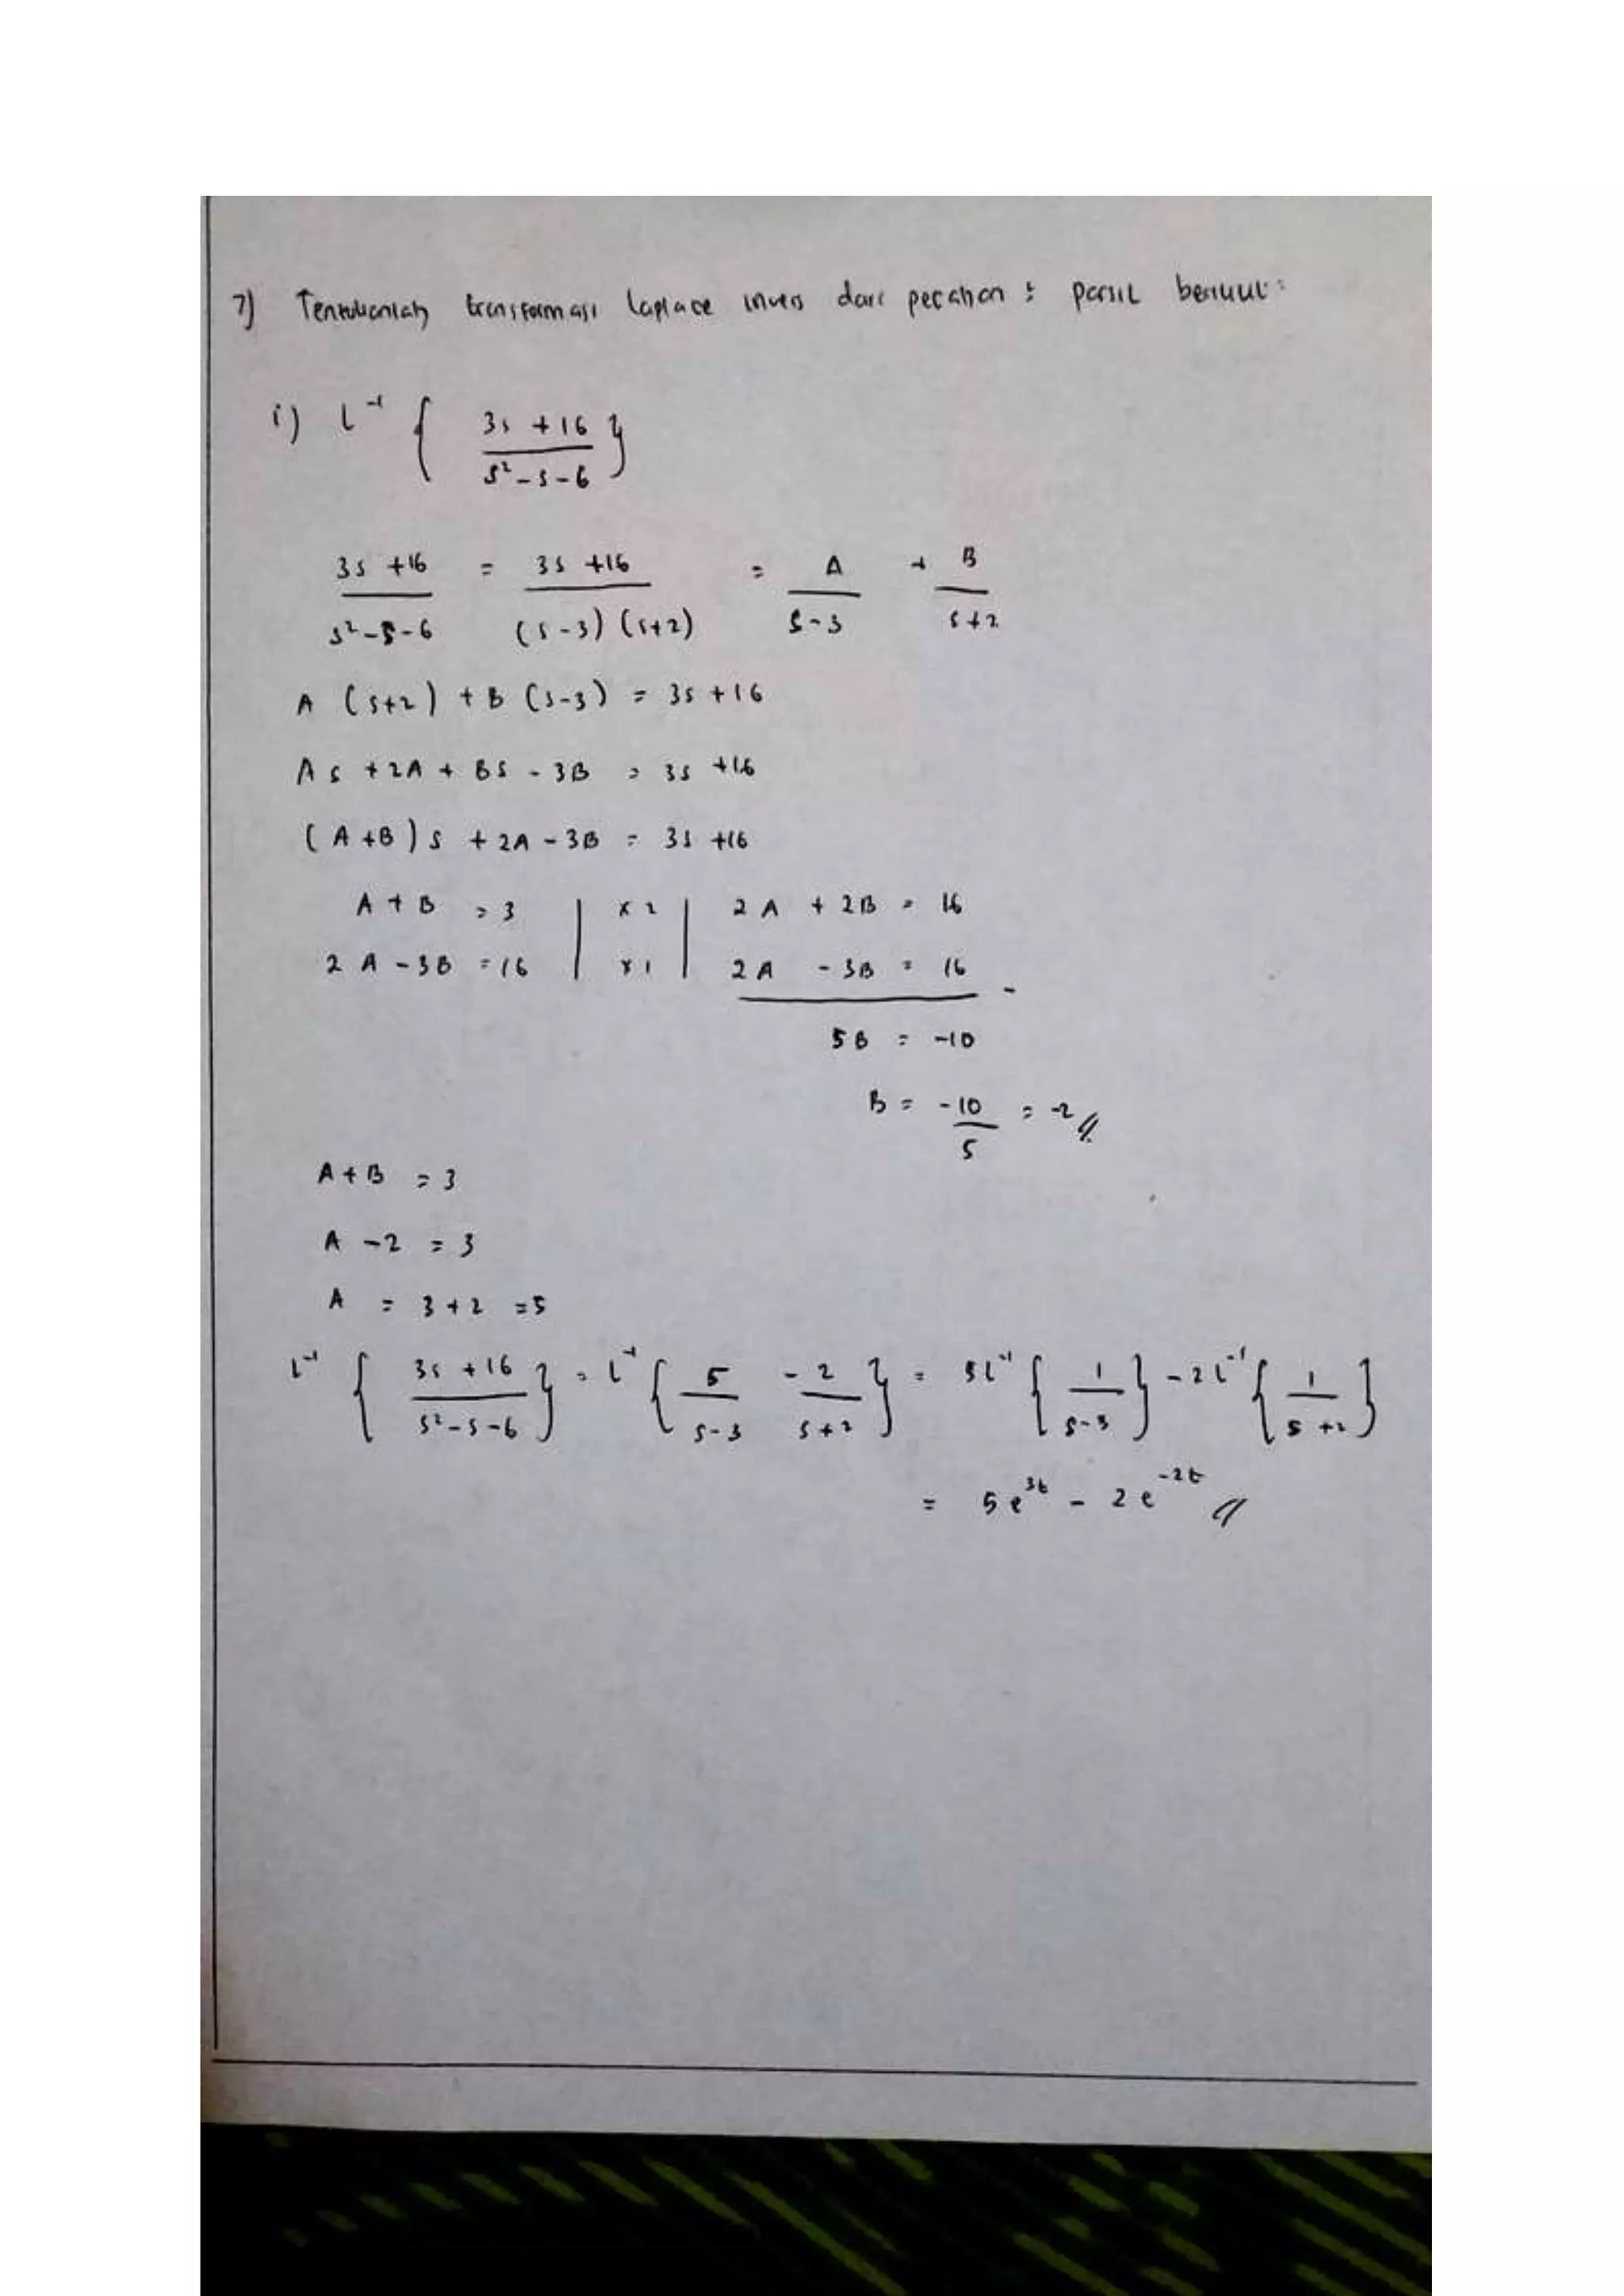 7) Tentukanlah transformasi laplace invers dari pecahan : parsil berikut :
i) L⁻¹ { (3s + 16) / (s² - s - 6) }
(3s + 16) / (s² - s - 6) = (3s + 16) / ((s - 3) (s + 2)) = A / (s - 3) + B / (s + 2)
A (s+2) + B (s-3) = 3s + 16
As + 2A + Bs - 3B = 3s + 16
(A + B) s + 2A - 3B = 3s + 16
A + B = 3 | x 2 | 2A + 2B = 16
2A - 3B = 16 | x 1 | 2A - 3B = 16 -
5B = -10
B = -10 / 5 = -2 //
A + B = 3
A - 2 = 3
A = 3 + 2 = 5
L⁻¹ { (3s + 16) / (s² - s - 6) } = L⁻¹ { 5 / (s - 3) - 2 / (s + 2) } = 5L⁻¹ { 1 / (s - 3) } - 2L⁻¹ { 1 / (s + 2) }
= 5e³ᵗ - 2e⁻²ᵗ //